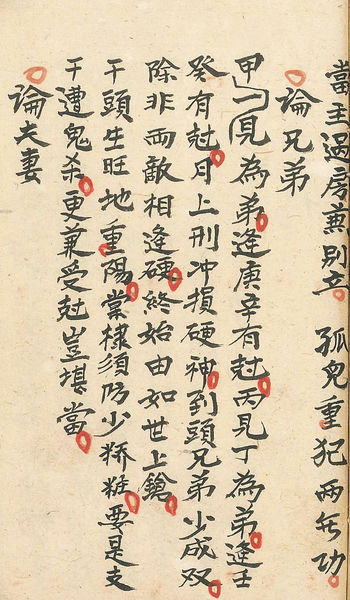 當主過房兼別立 孤鬼重犯兩無功
論兄弟
甲乙見為弟逢庚辛有尅丙見丁為弟逢壬
癸有尅月上刑冲損硬神到頭兄弟少成双
除非两敵相逢硬終始由如世上鎗
干頭生旺地重陽棠棣須防少粧要是支
干遭鬼杀更兼受尅豈堪當
論夫妻